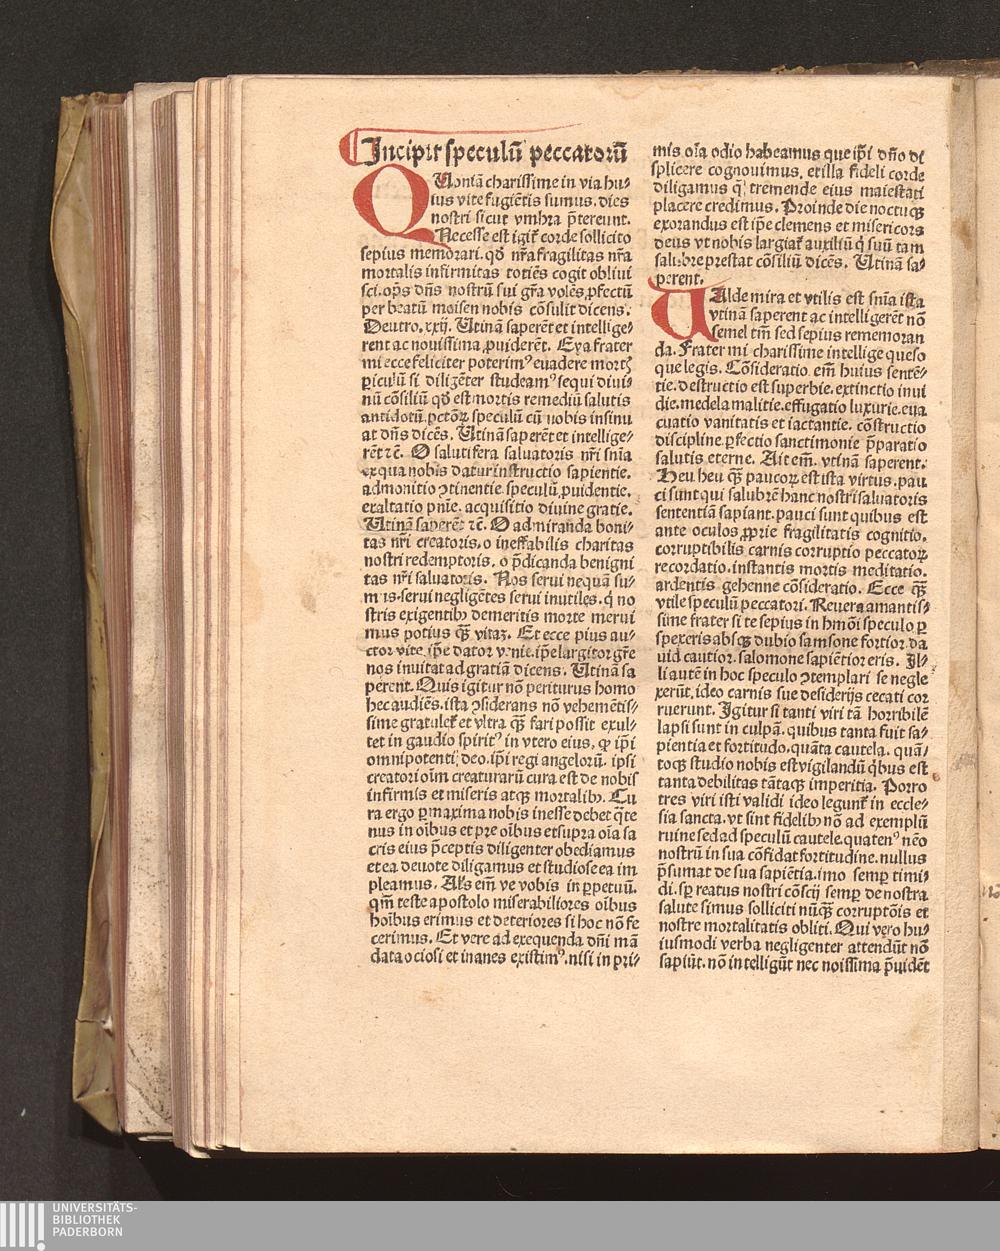 Incipit speculū peccatorū
QUoniā charissime in via hu⸗
ius vite fugiētis sumus. dies
nostri sicut vmbra p̄tereunt.
Necesse est igit̄ corde sollicito
sepius memorari. qđ nr̄a fragilitas nr̄a
mortalis infirmitas totiēs cogit obliui
sci. op̄s dn̄s nostrū sui gr̄a volēs ꝓfectū
per beatū moisen nobis cōsulit dicens.
Deutro. xxij. Utinā saperēt et intellige⸗
rent ac nouissima ꝓuiderēt. Eya frater
mi ecce feliciter poterimꝰ euadere mortꝭ
ꝑiculū si diligēter studeamꝰ sequi diui⸗
nū cōsiliū qđ est mortis remediū salutis
antidotū. pctōꝝ speculū cū nobis insinu
at dn̄s dicēs. Utinā saperēt et intellige⸗
rēt ⁊c̄. O salutifera saluatoris nr̄i sn̄ia
ex qua nobis datur instructio sapientie.
admonitio ꝯtinentie speculū ꝓuidentie.
exaltatio pn̄ie. acquisitio diuine gratie.
Utinā saperēt ⁊c̄. O admiranda boni⸗
tas nr̄i creatoris. o ineffabilis charitas
nostri redemptoris. o p̄dicanda benigni
tas nr̄i saluatoris. Nos serui nequā su⸗
mus. serui negligētes serui inutiles. q̇ no
stris exigentibꝫ demeritis morte merui
mus potius qꝫ̄ vitaꝫ. Et ecce pius au⸗
ctor vite ip̄e dator venie. ip̄e largitor gr̄e
nos inuitat ad gratiā dicens. Utinā sa
perent. Quis igitur nō periturus homo
hec audiēs. ista ꝯsiderans nō vehemētis⸗
sime gratulet̄ et vltra qꝫ̄ fari possit exul⸗
tet in gaudio spiritꝰ in vtero eius, ꝙ ip̄i
omnipotenti deo. ip̄i regi angelorū. ipsi
creatori oīm creaturarū cura est de nobis
infirmis et miseris atqꝫ mortalibꝫ. Cu
ra ergo ꝑmaxima nobis inesse debet q̄te
nus in oībus et pre oībus et supra oīa sa
cris eius p̄ceptis diligenter obediamus
et ea deuote diligamus et studiose ea im
pleamus. Alʼs em̄ ve vobis in ꝑpetuū.
qm̄ teste apostolo miserabiliores oībus
hoībus erimus et deteriores si hoc nō fe
cerimus. Et vere ad exequenda dn̄i mā
data ociosi et inanes existimꝰ. nisi in pri⸗
mis oīa odio habeamus que ip̄i dn̄o di
splicere cognouimus. et illa fideli corde
diligamus q̄ tremende eius maiestati
placere credimus. Proinde die noctuqꝫ
exorandus est ip̄e clemens et misericors
deus vt nobis largiat̄ auxiliū q̇ suū tam
salubre prestat cōsiliū dicēs. Utinā sa⸗
perent.
UAlde mira et vtilis est sn̄ia ista
vtinā saperent ac intelligerēt nō
semel tm̄ sed sepius rememoran
da. Frater mi charissime intellige queso
que legis. Cōsideratio em̄ huius sentē⸗
tie. destructio est superbie. extinctio inui
die. medela malitie. effugatio luxurie. eua
cuatio vanitatis et iactantie. cōstructio
discipline ꝑfectio sanctimonie p̄paratio
salutis eterne. Ait em̄. vtinā saperent.
Heu heu qꝫ̄ paucoꝝ est ista virtus. pau
ci sunt qui salubrē hanc nostri saluatoris
sententiā sapiant. pauci sunt quibus est
ante oculos ꝓprie fragilitatis cognitio.
corruptibilis carnis corruptio peccatoꝝ
recordatio. instantis mortis meditatio.
ardentis gehenne cōsideratio. Ecce qꝫ̄
vtile speculū peccatori. Reuera amantis⸗
sime frater si te sepius in hm̄oi speculo ꝑ
spexeris absqꝫ dubio samsone fortior da
uid cautior. salomone sapiētior eris. Il⸗
li autē in hoc speculo ꝯtemplari se negle
xerūt. ideo carnis sue desiderijs cecati cor
ruerunt. Igitur si tanti viri tā horribilē
lapsi sunt in culpā. quibus tanta fuit sa⸗
pientia et fortitudo. quāta cautela. quā⸗
toqꝫ studio nobis est vigilandū q̇bus est
tanta debilitas tātaqꝫ imperitia. Porro
tres viri isti validi ideo legunt̄ in eccle⸗
sia sancta. vt sint fidelibꝫ nō ad exemplū
ruine sed ad speculū cautele. quatenꝰ nēo
nostrū in sua cōfidat fortitudine. nullus
p̄sumat de sua sapiētia. imo semꝑ timi⸗
di. sꝑ reatus nostri cōscij semꝑ de nostra
salute simus solliciti nūqꝫ̄ corruptōis et
nostre mortalitatis obliti. Qui vero hu⸗
iusmodi verba negligenter attendūt nō
sapiūt. nō intelligūt nec noissima p̄uidēt
UNIVERSITÄTS-
BIBLIOTHEK
PADERBORN